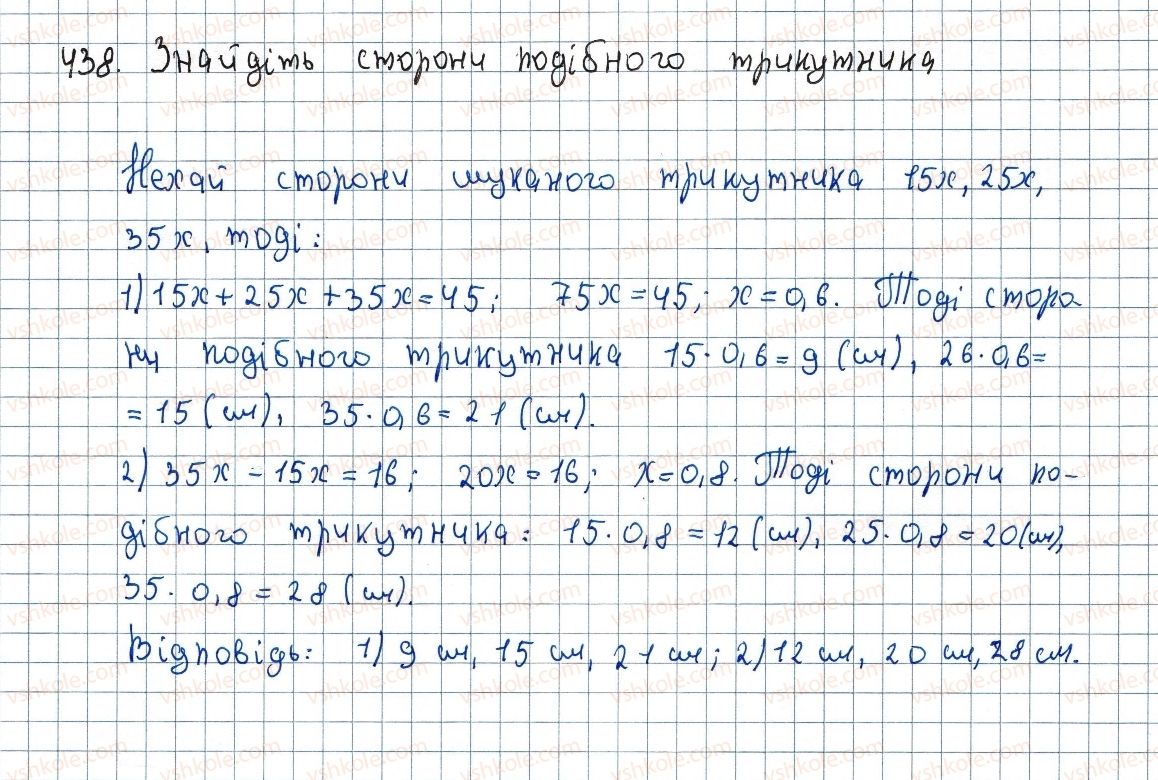 438. Знайдіть сторони подібного трикутника
Нехай сторони шуканого трикутника 15x, 25x,
35x, тоді:
1) 15x + 25x + 35x = 45; 75x = 45; x = 0,6. Тоді сторо
ни подібного трикутника 15·0,6 = 9 (см), 26·0,6=
= 15 (см), 35·0,6 = 21 (см).
2) 35x - 15x = 16; 20x = 16; x = 0,8. Тоді сторони по-
дібного трикутника: 15·0,8 = 12 (см), 25·0,8 = 20 (см),
35·0,8 = 28 (см).
Відповідь: 1) 9 см, 15 см, 21 см; 2) 12 см, 20 см, 28 см.
vshkole.com